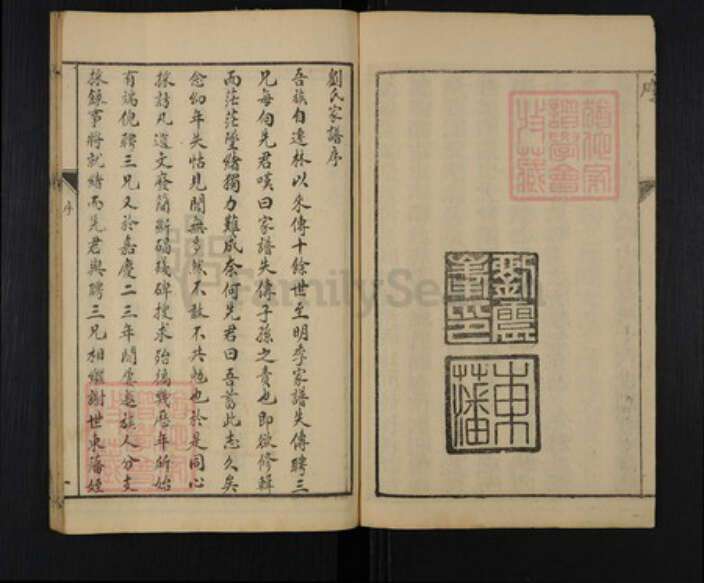 序
猶他家
譜學會
特藏
東藩
劉氏家譜序
吾族自遷林以來傳十餘世至明季家譜失傳聘三
兄每向先君嘆曰家譜失傳子孫之責也即欲修輯
而茫茫墜緒獨力難成奈何先君曰吾蓄此志久矣
念幼年失怙見聞無多然不敢不共勉也於是同心
採訪凡遺文廢簡斷碣殘碑搜求殆徧幾歷年所始
有端倪聘三兄又於嘉慶二三年間屢 族人分支
採錄事將就緒而先君與聘三兄相繼謝世東藩姪
序
一
FamilySearch